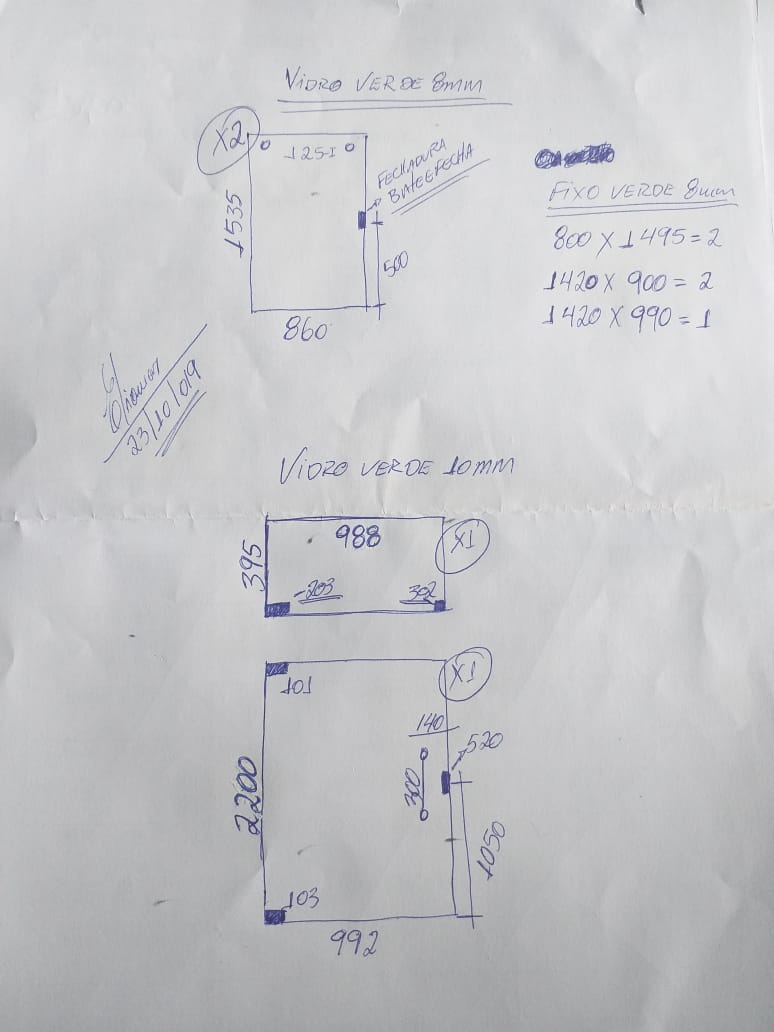 VIDRO VERDE 8mm
X2
125-I
FECHADURA
BATE E FECHA
1535
500
860
FIXO VERDE 8mm
800 X 1495 = 2
1420 X 900 = 2
1420 X 990 = 1
23/10/019
VIDRO VERDE 10mm
988
X1
395
203
302
X1
101
140
520
300
2200
1050
103
992